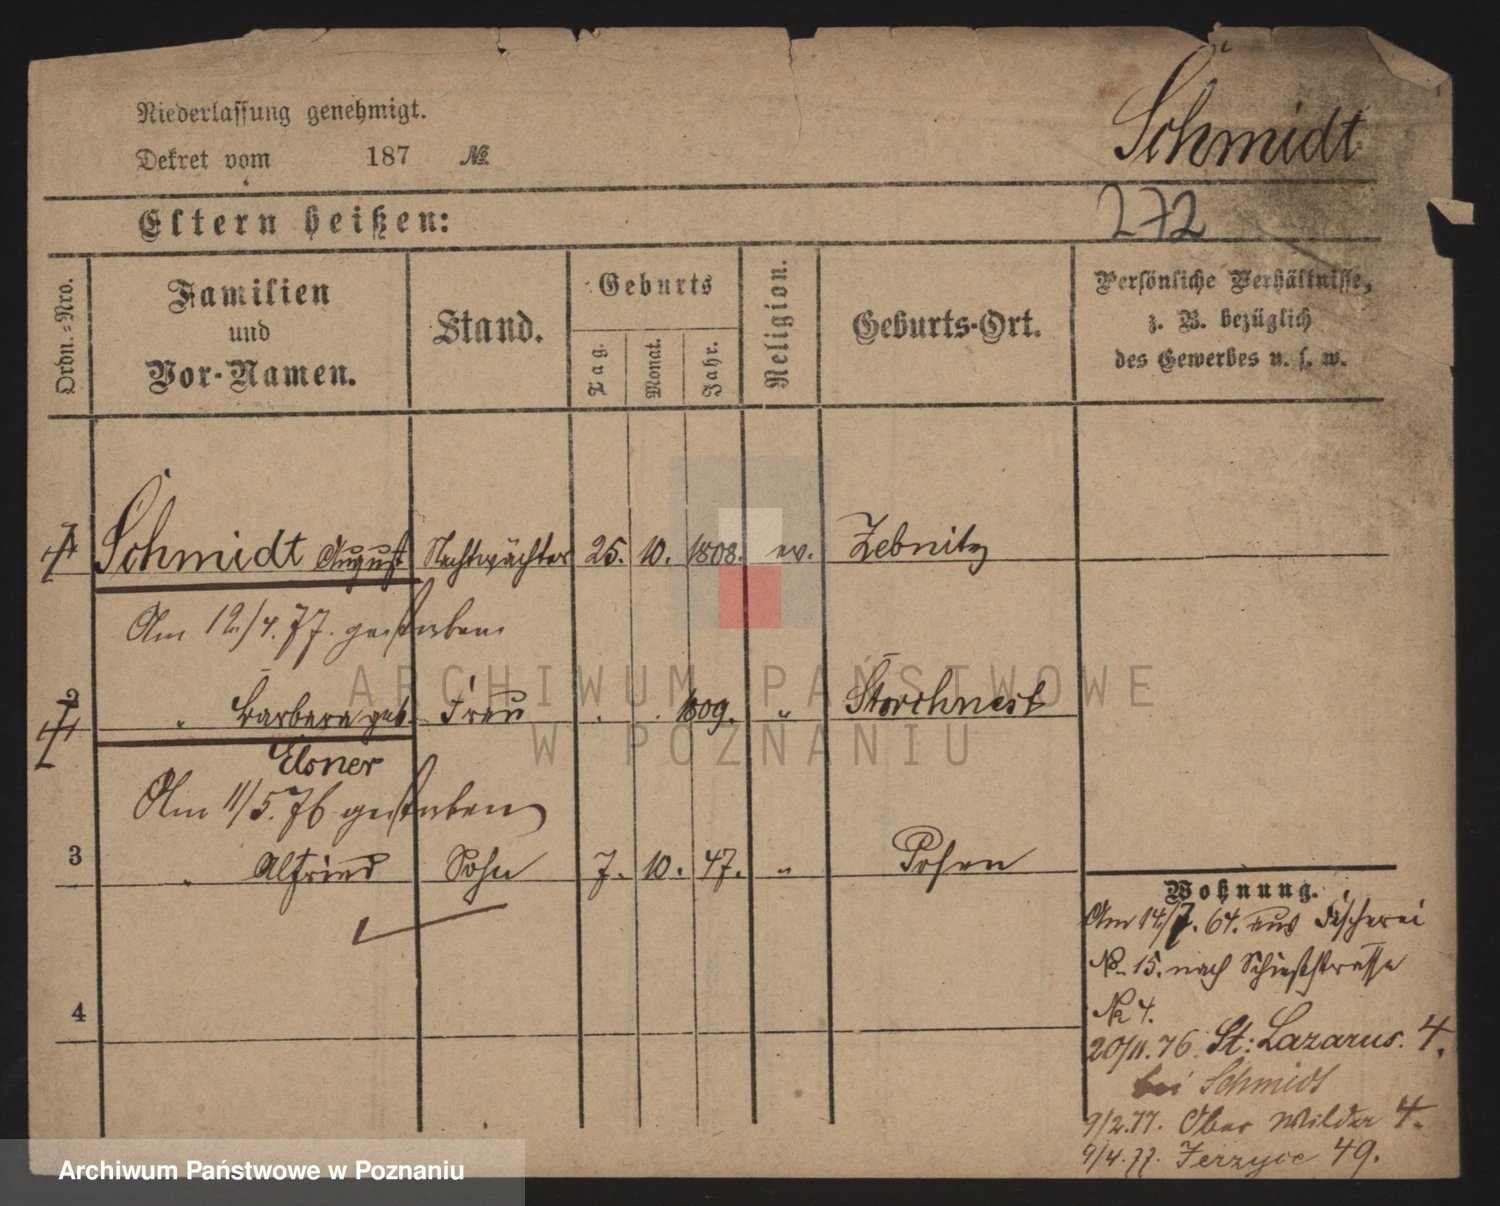 Niederlassung genehmigt.
Dekret vom 187 №
Schmidt
272
Eltern heißen:
Ordn.-Nro.
Familien
und
Vor-Namen.
Stand.
Geburts
Tag.
Monat.
Jahr.
Religion.
Geburts-Ort.
Persönliche Verhältnisse,
z. B. bezüglich
des Gewerbes u. s. w.
1 Schmidt August Nachtwächter 25. 10. 1808. ev. Zebnitz
Am 12./4. 77. gestorben
2 " Barbara geb. Frau . . 1809. " Storchnest
Elsner
Am 11/5. 76 gestorben
3 " Alfried Sohn 7. 10. 47. " Posen
4
Wohnung.
Am 14/7. 64. aus Fischerei
No 15. nach Schießstrasse
No 4.
20/11. 76. St: Lazarus. 4.
bei Schmidt
9/2. 77. Ober Wilda 4.
9/4. 77. Jerzyce 49.
ARCHIWUM PAŃSTWOWE
W POZNANIU
Archiwum Państwowe w Poznaniu